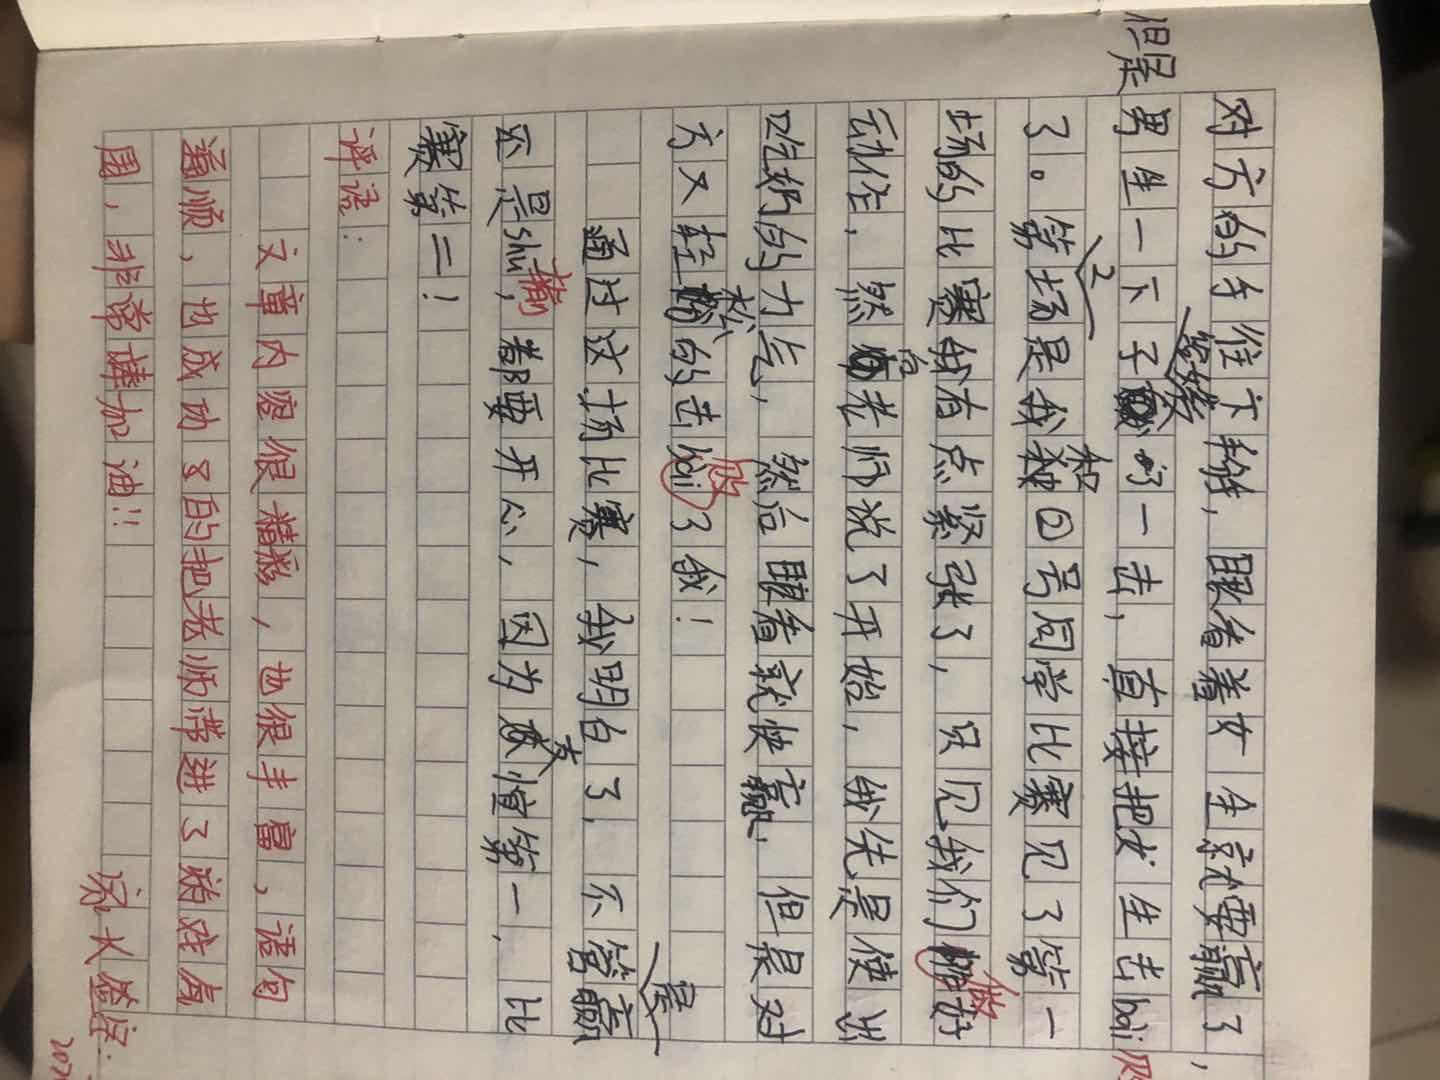 对方的手往下掰，眼看着女生就要赢了，
但是男生一下子紧紧的一击，直接把女生击bài
了。第2场是我和②号同学比赛见了第一
场的比赛我有点紧张了，只见我们做好
动作，然后老师说了开始，我先是使出
吃奶的力气，然后眼看就快赢，但是对
方又轻松的击bài败了我！
通过这场比赛，我明白了，不管是赢
还是shū输，都要开心，因为友谊第一，比
赛第二！
评语：
文章内容很精彩，也很丰富，语句
通顺，也成功的把老师带进了游戏氛
围，非常棒加油！！
家长签字：